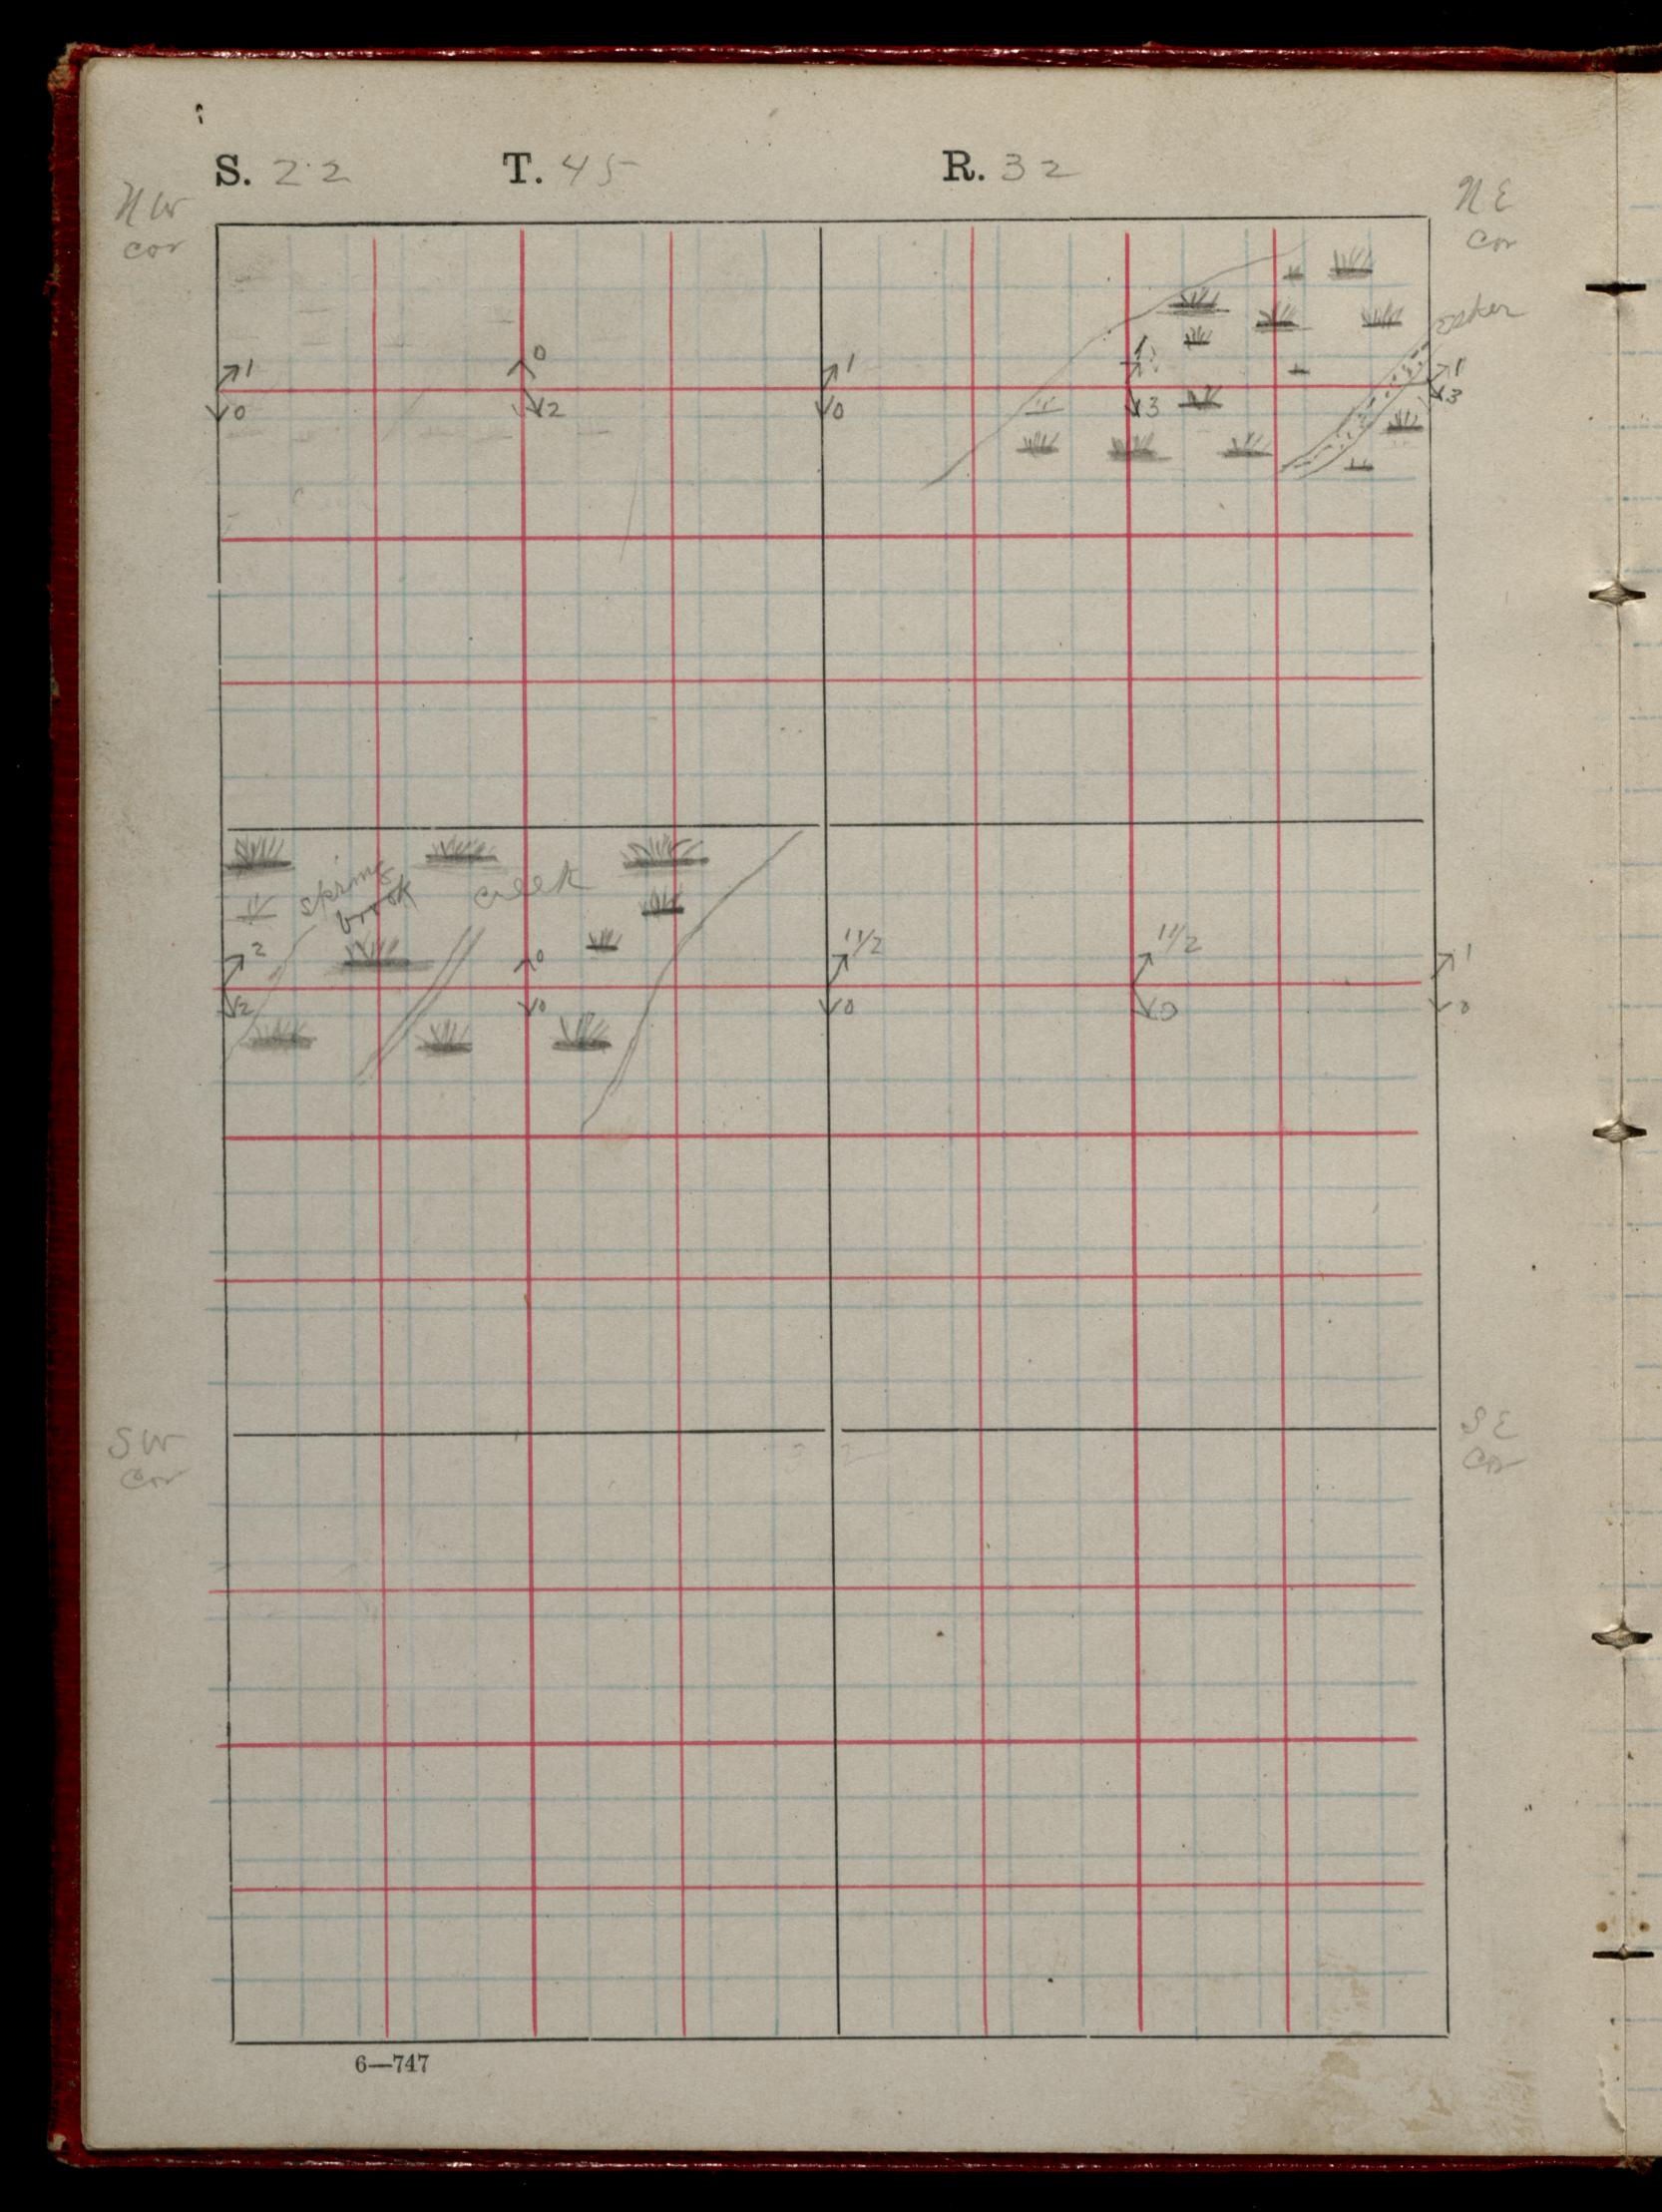 S. 22 T. 45 R. 32
NW
cor
NE
cor
esker
1 0 1 1 1
0 2 0 3 3
spring
brook
creek
2 0 1 1/2 1 1/2 1
2 0 0 0 0
SW
cor
SE
cor
6—747